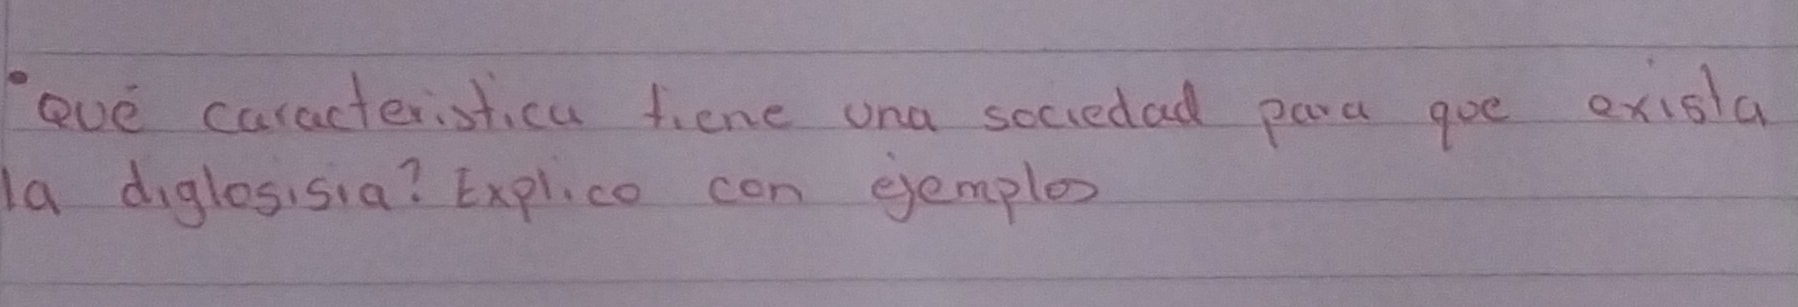 • Qué caracteristica tiene una sociedad para que exista
la diglosisia? Explico con ejemplos